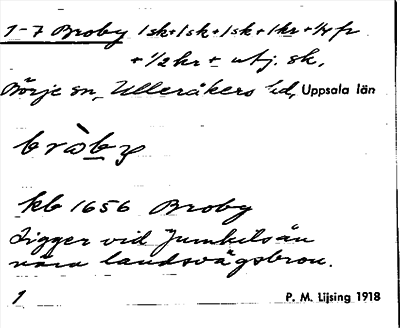 1-7 Broby 1 sk+1 sk+1 sk+1 kr+1/4 fr
+ 1/2 kr + utj. sk.
Börje sn, Ulleråkers hd, Uppsala län
bròby
kb 1656 Broby
Ligger vid Jumkilsån
nära landsvägsbron.
1 P. M. Lijsing 1918